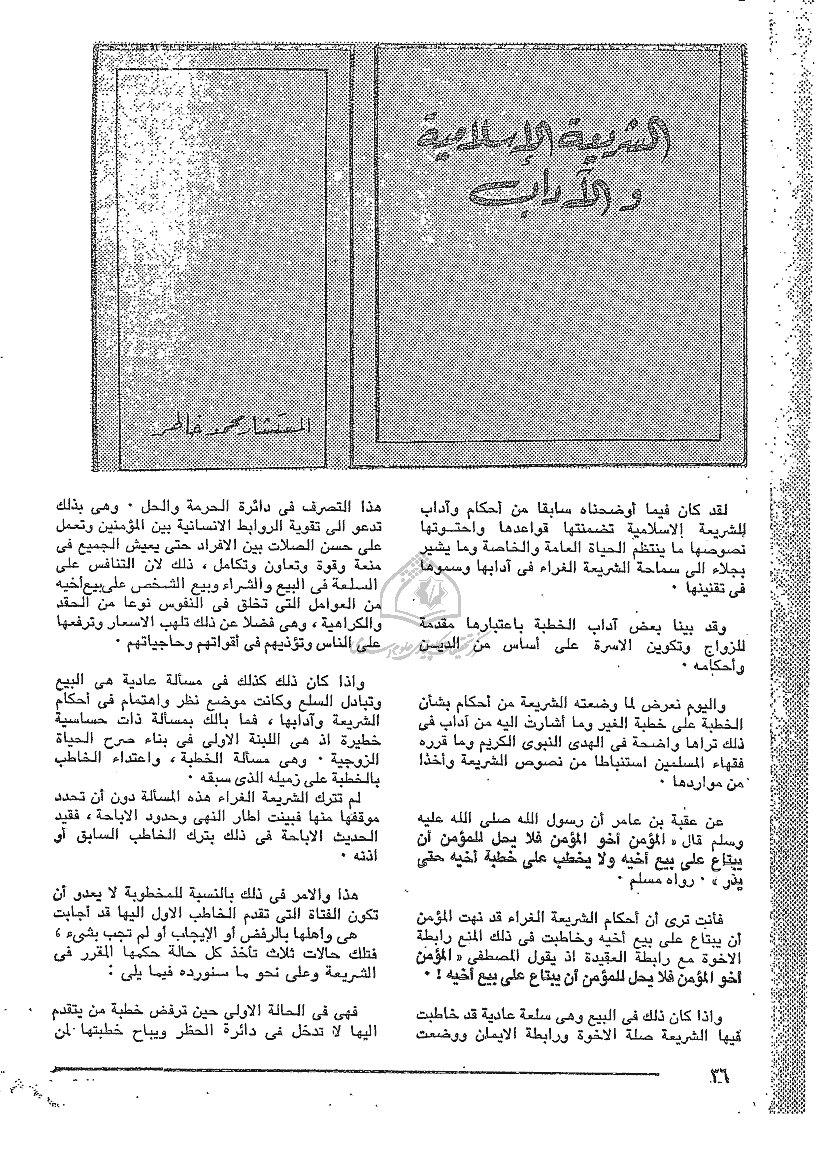 الشريعة الإسلامية
والآداب
المستشار محمود خاطر
لقد كان فيما أوضحناه سابقا من أحكام وآداب
للشريعة الاسلامية تضمنتها قواعدها واحتوتها
نصوصها ما ينتظم الحياة العامة والخاصة وما يشير
بجلاء الى سماحة الشريعة الغراء فى آدابها وسموها
فى تقنينها ٠
وقد بينا بعض آداب الخطبة باعتبارها مقدمة
للزواج وتكوين الاسرة على أساس من الدين
وأحكامه ٠
واليوم نعرض لما وضعته الشريعة من أحكام بشأن
الخطبة على خطبة الغير وما أشارت اليه من آداب فى
ذلك تراها واضحة فى الهدى النبوى الكريم وما قرره
فقهاء المسلمين استنباطا من نصوص الشريعة وأخذا
من مواردها ٠
عن عقبة بن عامر أن رسول الله صلى الله عليه
وسلم قال « المؤمن أخو المؤمن فلا يحل للمؤمن أن
يبتاع على بيع أخيه ولا يخطب على خطبة أخيه حتى
يذر » ٠ رواه مسلم ٠
فأنت ترى أن أحكام الشريعة الغراء قد نهت المؤمن
أن يبتاع على بيع أخيه وخاطبت فى ذلك المنع رابطة
الاخوة مع رابطة العقيدة اذ يقول المصطفى « المؤمن
أخو المؤمن فلا يحل للمؤمن أن يبتاع على بيع أخيه ! ٠
واذا كان ذلك فى البيع وهى سلعة عادية قد خاطبت
فيها الشريعة صلة الاخوة ورابطة الايمان ووضعت
هذا التصرف فى دائرة الحرمة والحل ٠ وهى بذلك
تدعو الى تقوية الروابط الانسانية بين المؤمنين وتعمل
على حسن الصلات بين الافراد حتى يعيش الجميع فى
منعة وقوة وتعاون وتكامل ، ذلك لان التنافس على
السلعة فى البيع والشراء وبيع الشخص على بيع أخيه
من العوامل التى تخلق فى النفوس نوعا من الحقد
والكراهية ، وهى فضلا عن ذلك تلهب الاسعار وترفعها
على الناس وتؤذيهم فى أقواتهم وحاجياتهم ٠
واذا كان ذلك كذلك فى مسألة عادية هى البيع
وتبادل السلع وكانت موضع نظر واهتمام فى أحكام
الشريعة وآدابها ، فما بالك بمسألة ذات حساسية
خطيرة اذ هى اللبنة الاولى فى بناء صرح الحياة
الزوجية ٠ وهى مسألة الخطبة ، واعتداء الخاطب
بالخطبة على زميله الذى سبقه ٠
لم تترك الشريعة الغراء هذه المسألة دون أن تحدد
موقفها منها فبينت اطار النهى وحدود الاباحة ، فقيد
الحديث الاباحة فى ذلك بترك الخاطب السابق أو
أذنه ٠
هذا والامر فى ذلك بالنسبة للمخطوبة لا يعدو أن
تكون الفتاة التى تقدم الخاطب الاول اليها قد أجابت
هى واهلها بالرفض أو الإيجاب أو لم تجب بشىء ،
فتلك حالات ثلاث تأخذ كل حالة حكمها المقرر فى
الشريعة وعلى نحو ما سنورده فيما يلى :
فهى فى الحالة الاولى حين ترفض خطبة من يتقدم
اليها لا تدخل فى دائرة الحظر ويباح خطبتها لمن
٣٦